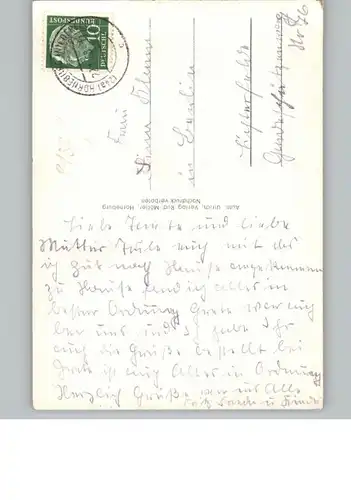 DEUTSCHE
BUNDESPOST
10
HORNEBURG
Frau
in Berlin
No 76
Aufn. Ulrich, Verlag Rolf Müller, Horneburg
Nachdruck verboten
Liebe Tante und liebe
Mutter Teile euch mit das
ich gut nach Hause angekommen
zu Hause fand ich alles in
bester Ordnung Grete war auch
bei uns und ich habe Ihr
auch die Grüße bestellt bei
Grete ist auch Alles in Ordnung
Herzlich Grüße von uns Alle
Fritz u Kinder